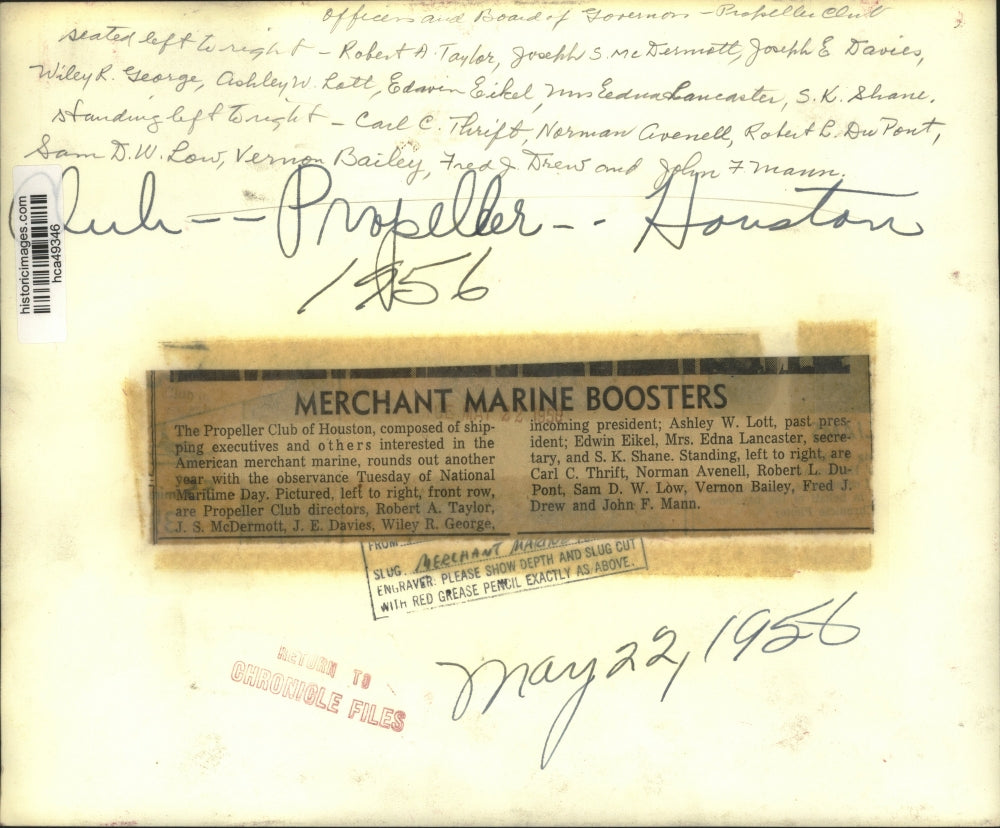 Officers and Board of Governors - Propeller Club
seated left to right - Robert A. Taylor, Joseph S. McDermott, Joseph E Davies,
Wiley R. George, Ashley W. Lott, Edavin Eikel, Mrs Eedna Lancaster, S.K. Shane.
standing left to right - Carl C. Thrift, Norman Avenell, Robert L. Du Pont,
Sam D.W. Low, Vernon Bailey, Fred J. Drew and John F Mann.
Club -- Propeller -- Houston
1956
historicimages.com
hca49346
MERCHANT MARINE BOOSTERS
The Propeller Club of Houston, composed of ship-
ping executives and others interested in the
American merchant marine, rounds out another
year with the observance Tuesday of National
Maritime Day. Pictured, left to right, front row,
are Propeller Club directors, Robert A. Taylor,
J. S. McDermott, J. E. Davies, Wiley R. George,
incoming president; Ashley W. Lott, past pres-
ident; Edwin Eikel, Mrs. Edna Lancaster, secre-
tary, and S. K. Shane. Standing, left to right, are
Carl C. Thrift, Norman Avenell, Robert L. Du-
Pont, Sam D. W. Low, Vernon Bailey, Fred J.
Drew and John F. Mann.
FROM
SLUG. MERCHANT MARINE
ENGRAVER: PLEASE SHOW DEPTH AND SLUG CUT
WITH RED GREASE PENCIL EXACTLY AS ABOVE.
RETURN TO
CHRONICLE FILES
May 22, 1956